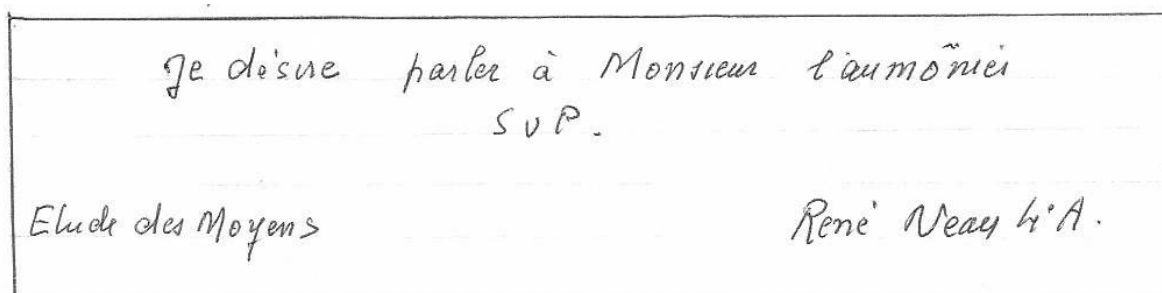 Je désire parler à Monsieur l'aumônier
S v P.
Etude des Moyens René Neau 4e A.